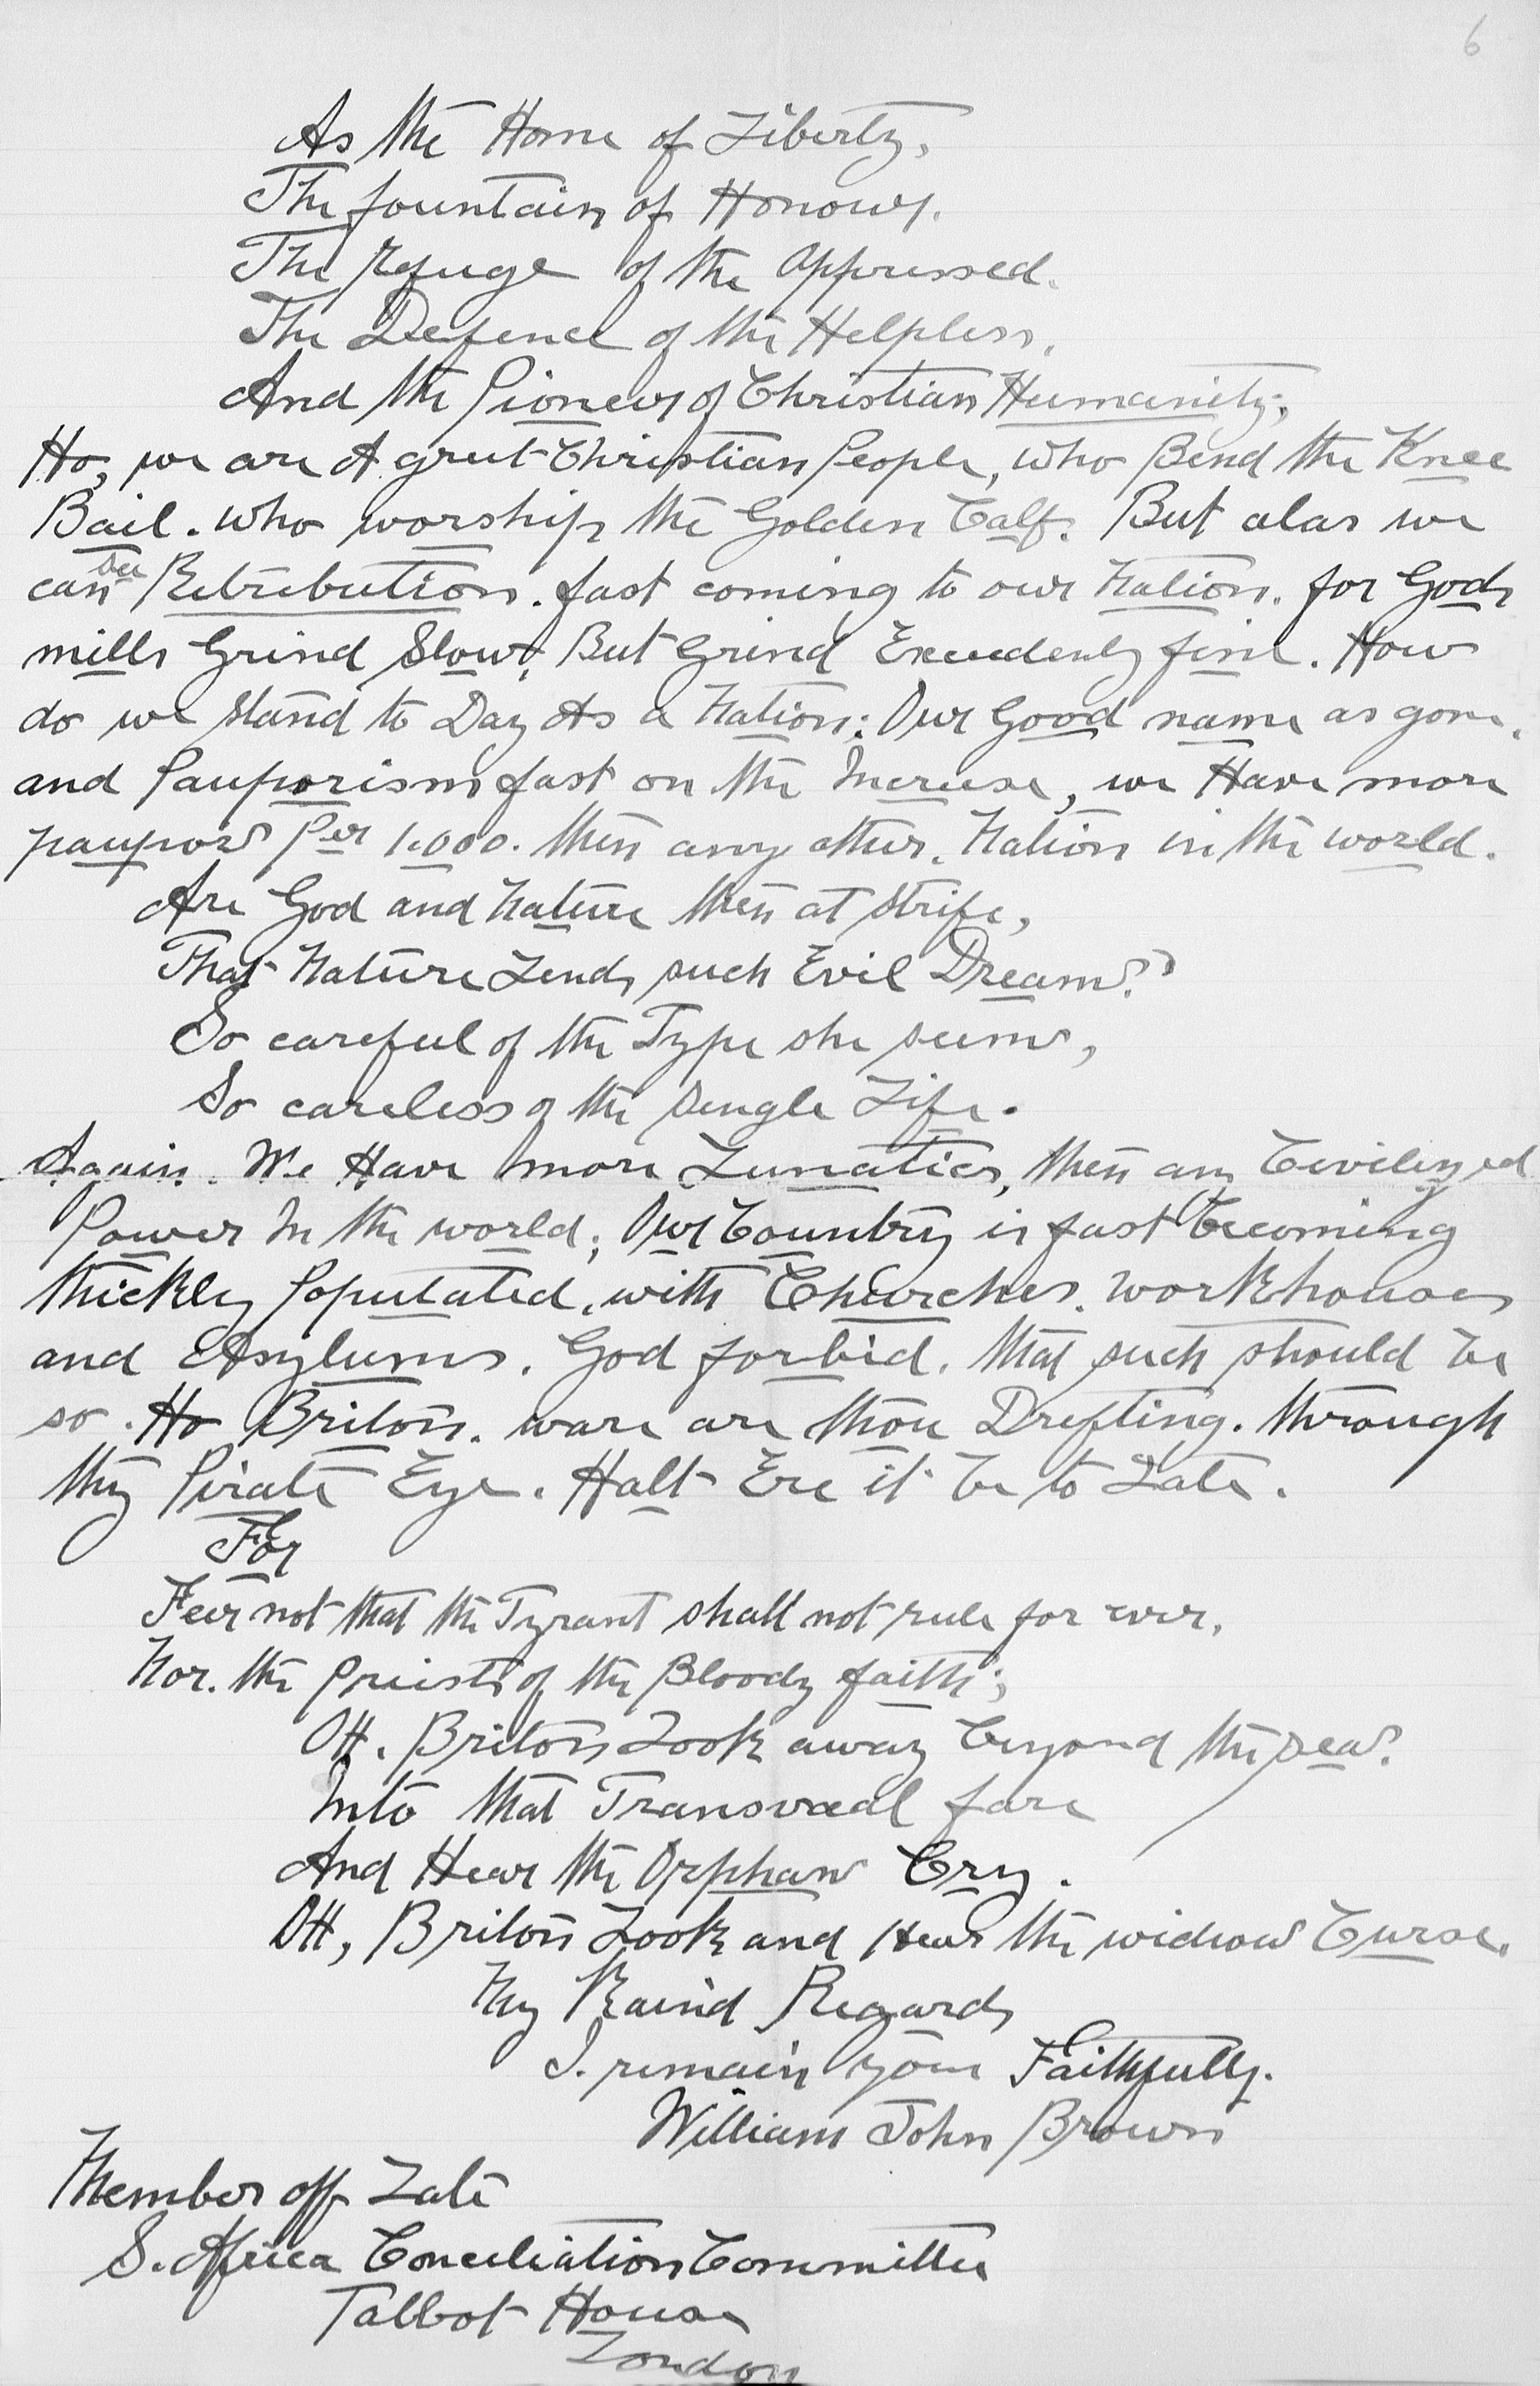 6
As the Home of Liberty,
The fountain of Honour,
The Refuge of the Oppressed.
The Defence of the Helpless,
And the Pioneer of Christian Humanity;
Ho, we are A great Christian People, who Bend the Knee
Bail. who worship the Golden Calf. But alas we
can see Retribution. fast coming to our Nation. for Gods
mills Grind Slow, But Grind Exceedenly fine. How
do we stand to Day As a Nation: Our Good name as gone,
and Pauporism fast on the Increase, we Have more
paupors Per 1.000. then any other. Nation in the world.
Are God and Nature then at strife,
That Nature Lends such Evil Dreams?
So careful of the Type she seems,
So careless of the single Life.
Again. We Have more Lunatics, then any Civilized
Power In the world; Our Country is fast becoming
thickly Populated, with Churches. workhouses
and Asylums. God forbid. that such should be
so. Ho Briton. ware are thou Drifting. through
thy Pirate Eye. Halt Ere it be to Late.
For
Fear not that the Tyrant shall not rule for ever,
Nor. the Priests of the Bloody faith;
OH. Briton Look away beyond the seas.
Into that Transvaal fare
And Hear the Orphans Cry.
OH, Briton Look and Hear the widows Curse.
My Kaind Regards
I. remain your Faithfully.
William John Brown
Member off Late
S. Africa Conciliation Committee
Talbot House
London